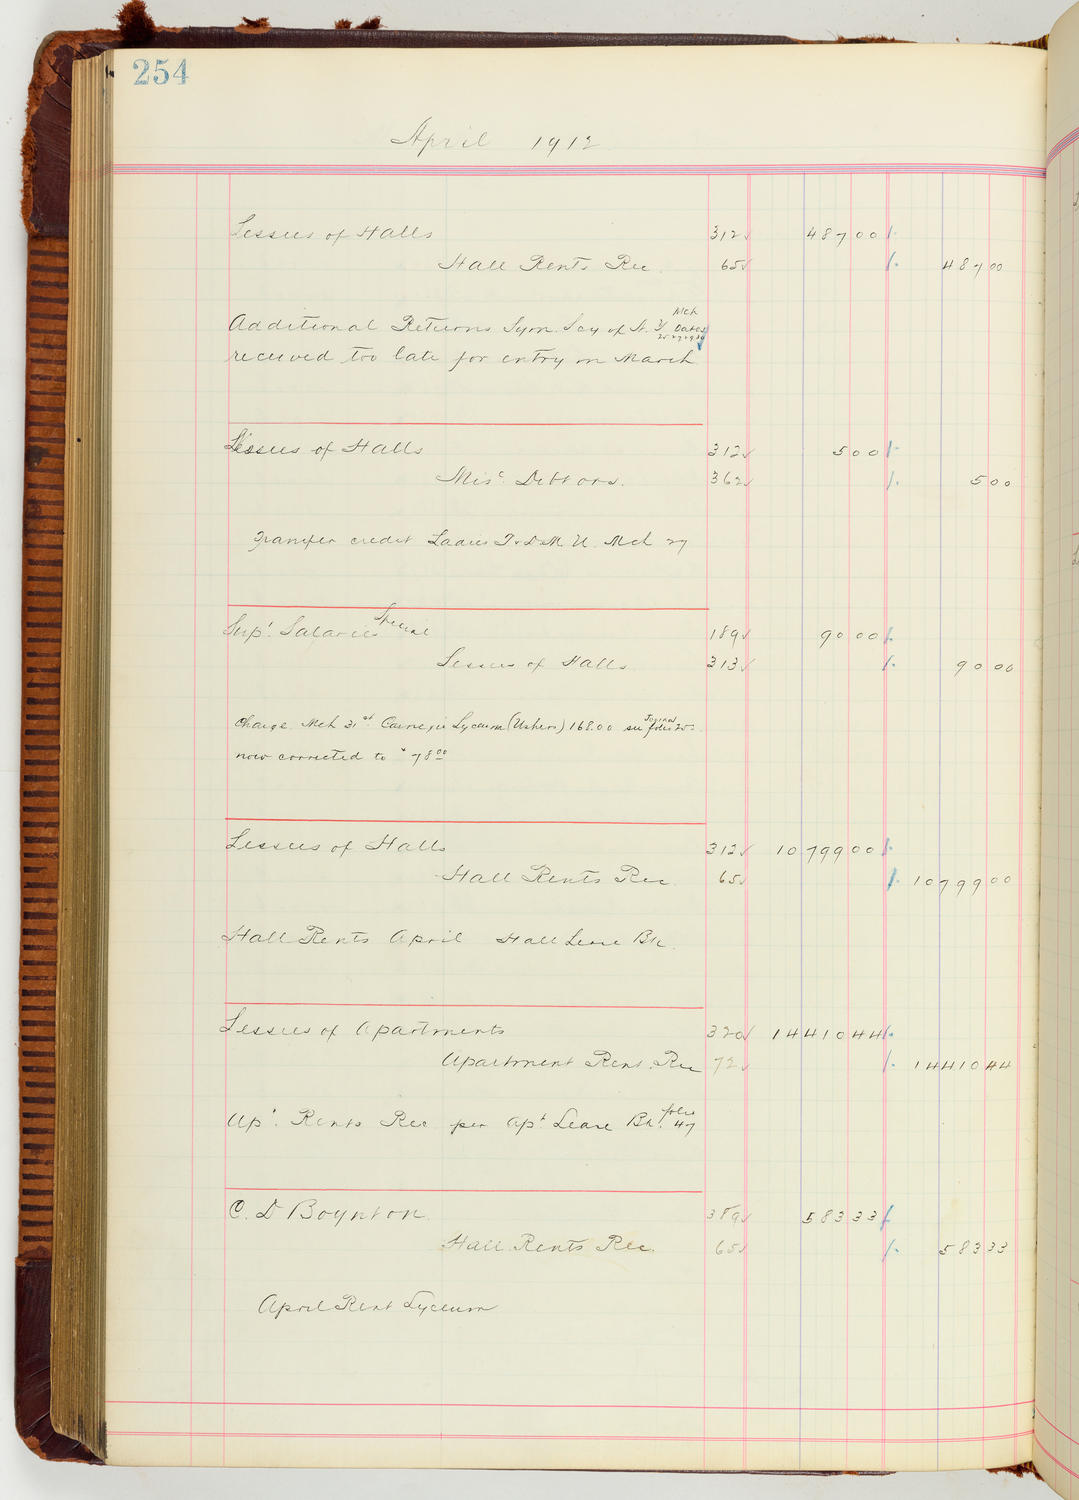 254
April 1912
Lessees of Halls 312 487 00
Hall Rents Rec. 65 487 00
Mch
Additional Returns Sym. Socy of N. Y. Dates
received too late for entry in March
Lessees of Halls 312 5 00
Misc Debtors. 362 5 00
Transfer credit Ladies M. U. Mch 27
Special
Supt. Salaries 189 90 00
Lessees of Halls 313 90 00
Charge Mch 31st Carnegie Lyceum (Ushers) 168.00 see Journal folio
now corrected to " 78 00
Lessees of Halls 312 10799 00
Hall Rents Rec 65 10799 00
Hall Rents April Hall Lease Bk.
Lessees of Apartments 320 14410 44
Apartment Rent. Rec 72 14410 44
Apt. Rents Rec per Apt Lease Bk. folio 47
C. D Boynton 389 583 33
Hall Rents Rec. 65 583 33
April Rent Lyceum